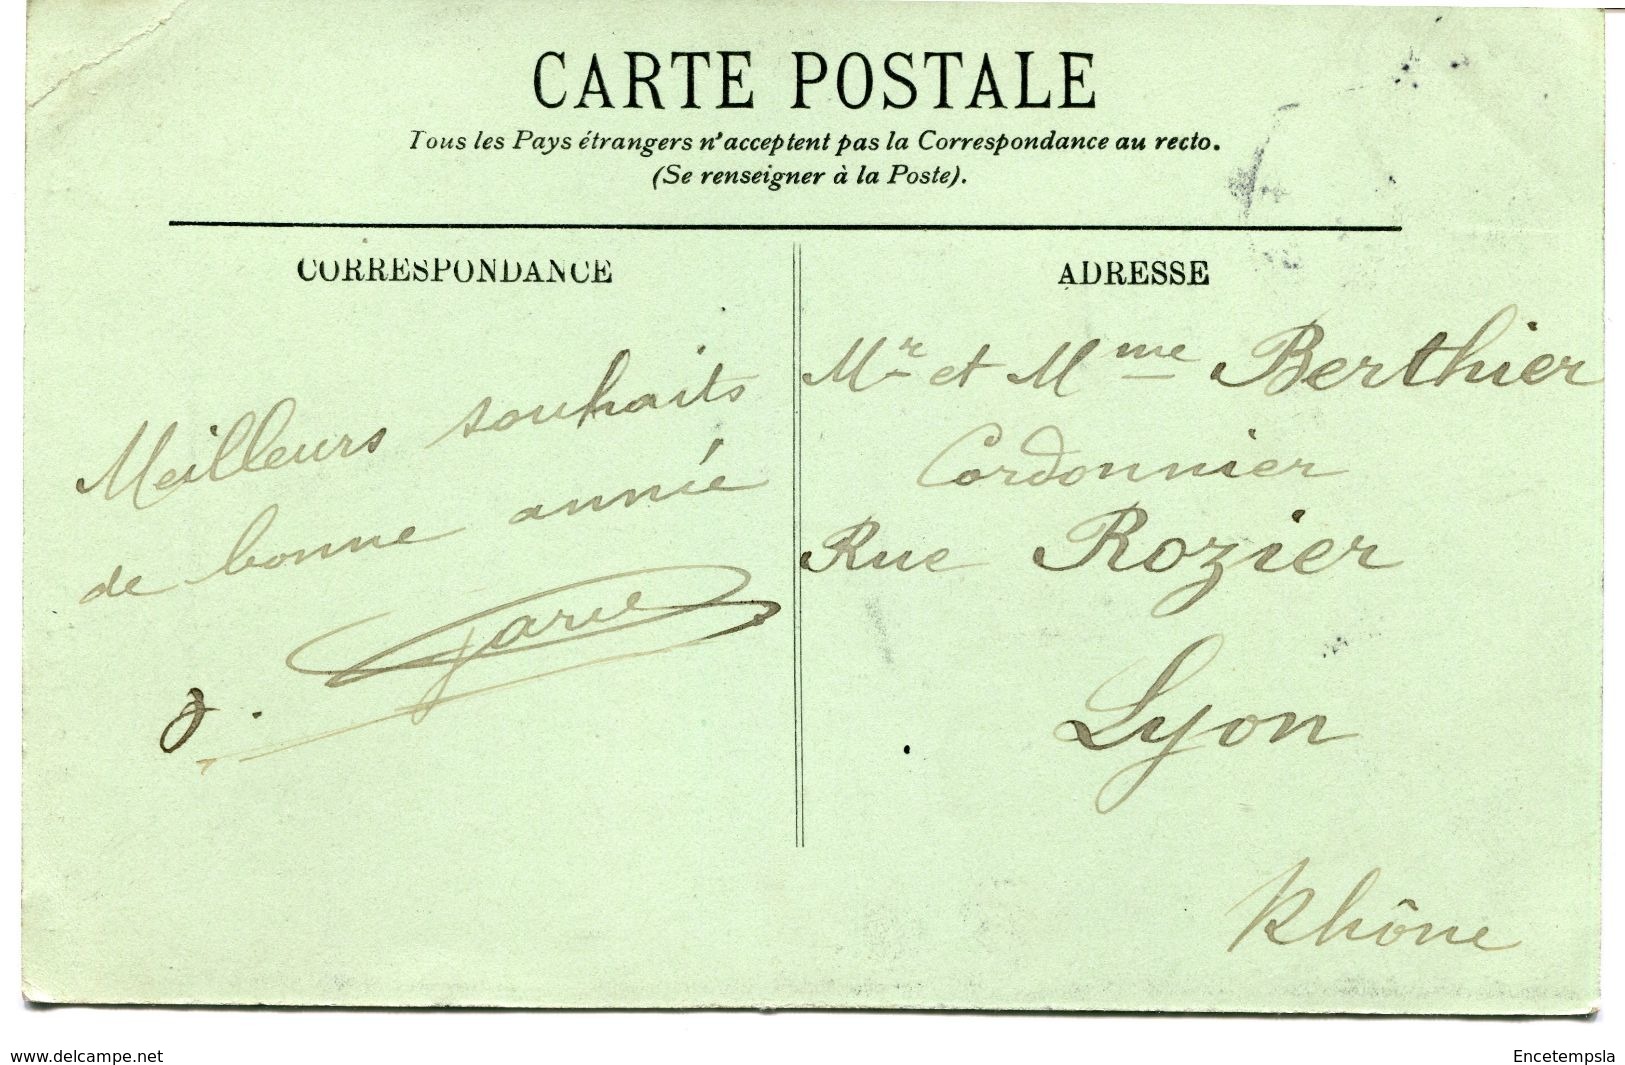 CARTE POSTALE
Tous les Pays étrangers n'acceptent pas la Correspondance au recto.
(Se renseigner à la Poste).
CORRESPONDANCE
Meilleurs souhaits
de bonne année
ADRESSE
Mr et Mme Berthier
Cordonnier
Rue Rozier
Lyon
Rhône
www.delcampe.net
Encetempsla